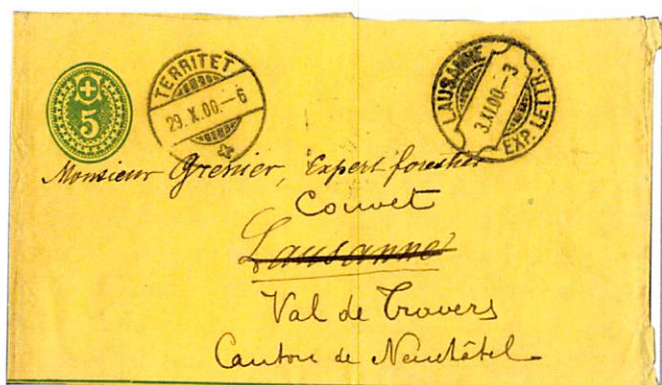 5
TERRITET
29.X.00.–6
LAUSANNE
3.XI.00.–3
EXP. LETTR.
Monsieur Grenier, Expert forestier
Couvet
Lausanne
Val de Travers
Canton de Neuchâtel